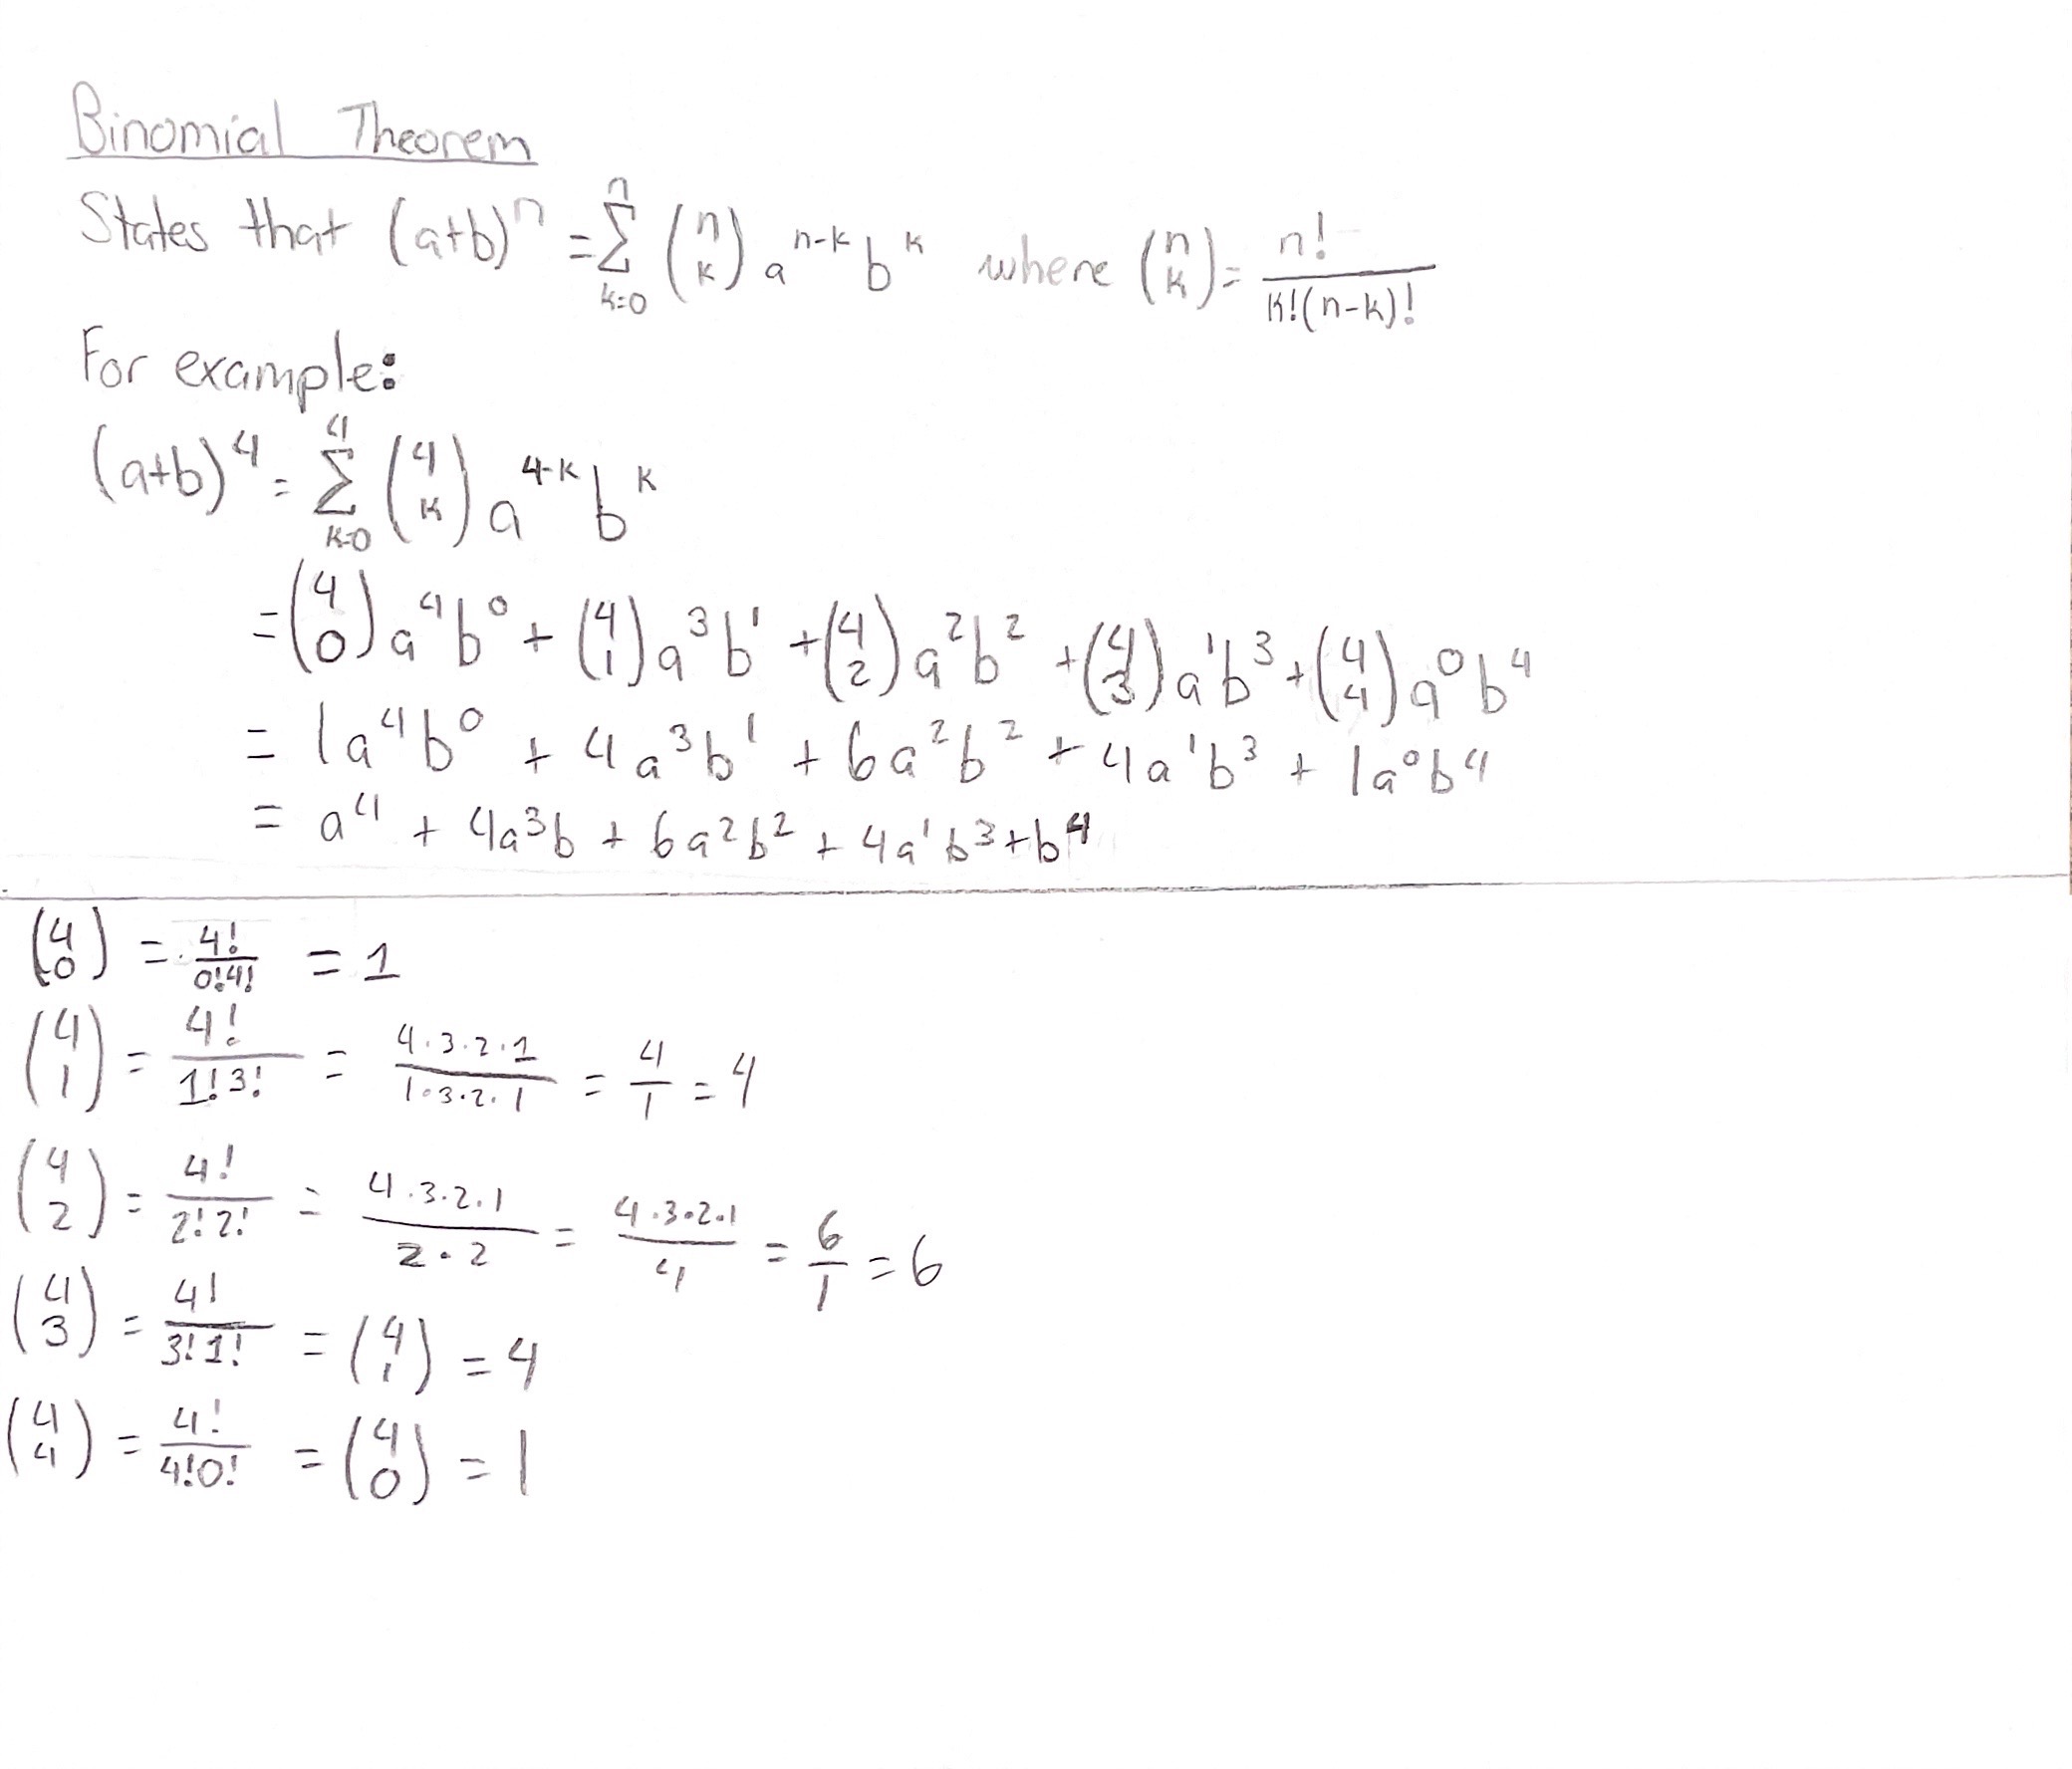 Binomial Theorem
States that (a+b)^n = ∑_{k=0}^{n} (n k) a^{n-k} b^k where (n k) = n!/(k!(n-k)!)
For example:
(a+b)^4 = ∑_{k=0}^{4} (4 k) a^{4-k} b^k
= (4 0) a^4 b^0 + (4 1) a^3 b^1 + (4 2) a^2 b^2 + (4 3) a^1 b^3 + (4 4) a^0 b^4
= 1a^4 b^0 + 4a^3 b^1 + 6a^2 b^2 + 4a^1 b^3 + 1a^0 b^4
= a^4 + 4a^3 b + 6a^2 b^2 + 4a^1 b^3 + b^4
(4 0) = 4!/(0!4!) = 1
(4 1) = 4!/(1!3!) = (4·3·2·1)/(1·3·2·1) = 4/1 = 4
(4 2) = 4!/(2!2!) = (4·3·2·1)/(2·2) = (4·3·2·1)/4 = 6/1 = 6
(4 3) = 4!/(3!1!) = (4 1) = 4
(4 4) = 4!/(4!0!) = (4 0) = 1